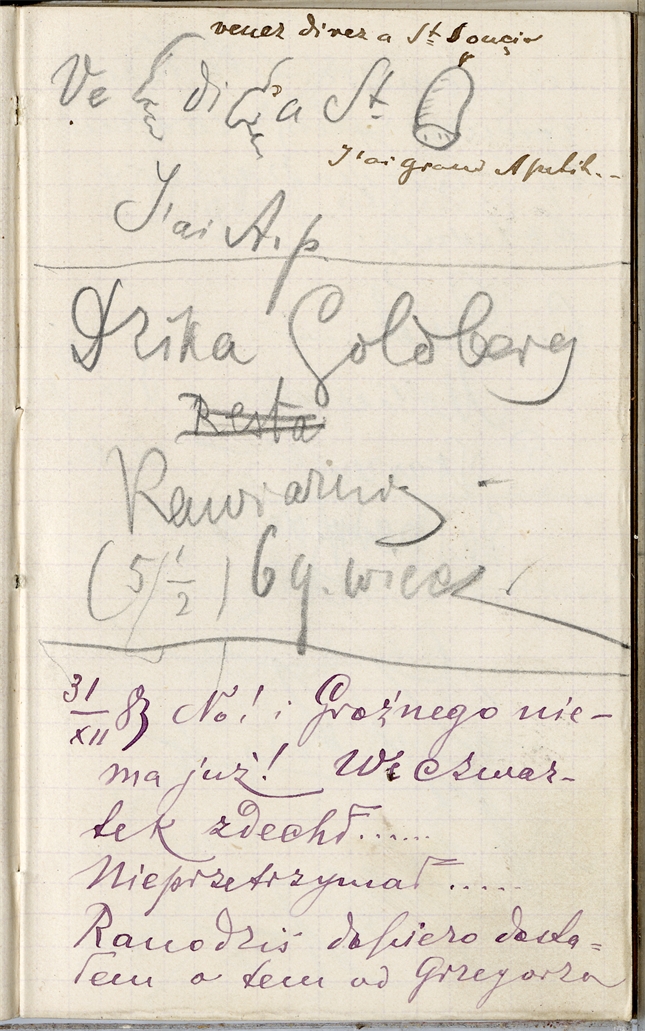 venez direz a St Soucis
Ve di a St
J'ai grand Apetit..
J'ai A. p
Dzika Goldberg
Resta
Kawiarnię -
(5 1/2) 6 g. wiecz
31/XII 83 No! i Groźnego nie-
ma już! We czwar-
tek zdechł......
Nieprzetrzymał.....
Rano dziś dopiero dosta=
łem o tem od Grzegorza